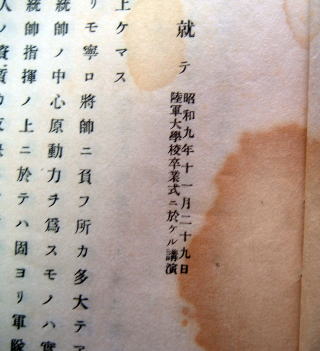 就テ
昭和九年十一月二十九日
陸軍大學校卒業式ニ於ケル講演
上ケマス
リモ寧ロ將帥ニ負フ所カ多大テア
統帥ノ中心原動力チ爲スモノハ實
統帥指揮ノ上ニ於テハ固ヨリ軍隊
人ノ資質カ